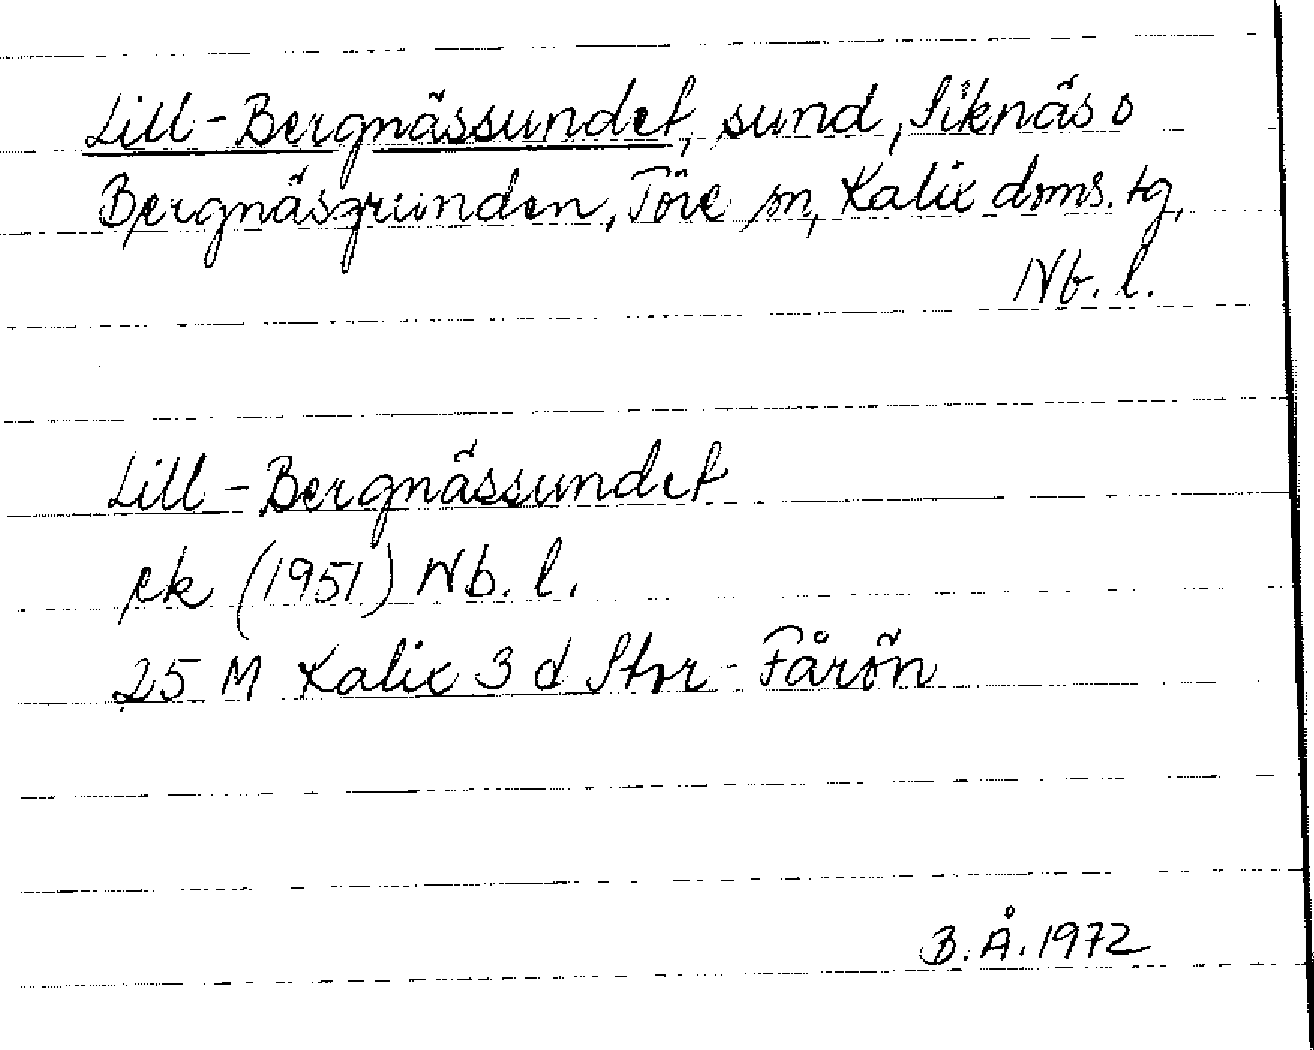 Lill-Bergnässundet, sund, Siknäs o
Bergnäsgrunden, Töre sn, Kalix doms. tg,
Nb. l.
Lill-Bergnässundet
ek (1951) Nb. l.
25 M Kalix 3 d Stor-Fårön
B. Å. 1972